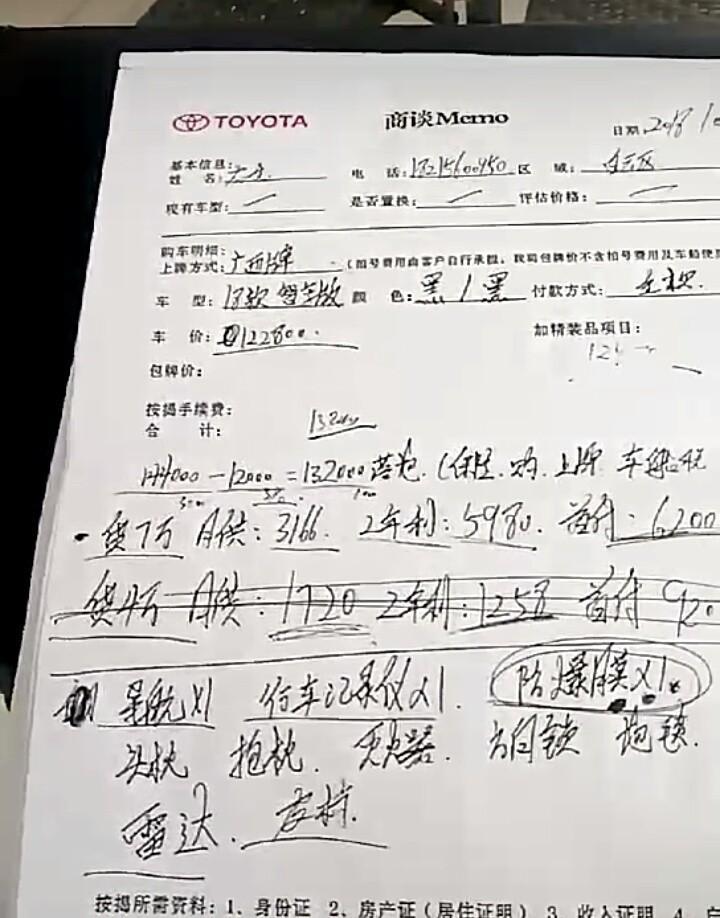 TOYOTA 商谈Memo 日期: 2018
基本信息:
姓 名: 电 话: 区 域: 白云区
现有车型: 是否置换: 评估价格:
购车明细:
上牌方式: 广西牌 (拍号费用由客户自行承担, 我司包牌价不含拍号费用及车船使
车 型: 18款 智享版 颜 色: 黑/黑 付款方式:
车 价: 122800. 加精装品项目:
包牌价:
按揭手续费:
合 计:
144000-12000=132000落地. (保险. 购. 上牌 车船税
·贷7万 月供: 3166. 2年利: 5980. 首付: 6200
贷4万 月供: 1720 2年利: 1258 首付 920
导航X1 行车记录仪X1. 防爆膜X1.
头枕 抱枕. 灭火器. 方向锁 地毯.
雷达.
按揭所需资料: 1、身份证 2、房产证(居住证明) 3、收入证明 4、